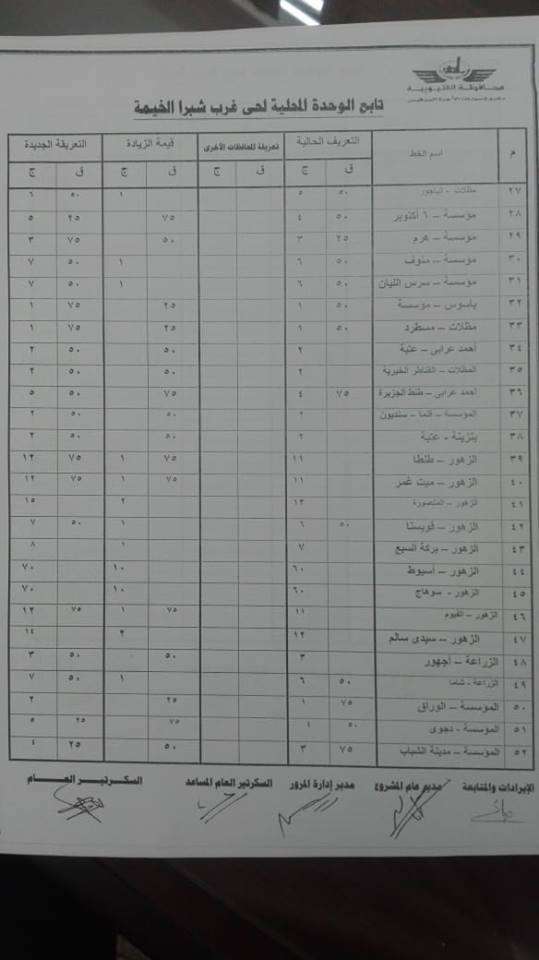 محافظة القليوبية
تابع الوحدة المحلية لحى غرب شبرا الخيمة
م اسم الخط التعريف الحالية تعريفة للمحافظات الأخرى قيمة الزيادة التعريفة الجديدة
ق ج ق ج ق ج ق ج
٢٧ مظلات - الباجور ٥٠ ٥ ١ ٥٠ ٦
٢٨ مؤسسة – ٦ أكتوبر ٥٠ ٤ ٧٥ ٢٥ ٥
٢٩ مؤسسة – هرم ٢٥ ٣ ٥٠ ٧٥ ٣
٣٠ مؤسسة – منوف ٥٠ ٦ ١ ٥٠ ٧
٣١ مؤسسة – سرس الليان ٥٠ ٦ ١ ٥٠ ٧
٣٢ باسوس – مؤسسة ٥٠ ١ ٢٥ ٧٥ ١
٣٣ مظلات – مسطرد ٥٠ ١ ٢٥ ٧٥ ١
٣٤ أحمد عرابى – عتبة ٢ ٥٠ ٥٠ ٢
٣٥ المظلات – القناطر الخيرية ٢ ٥٠ ٥٠ ٢
٣٦ أحمد عرابى – طنط الجزيرة ٧٥ ٤ ٧٥ ٥٠ ٥
٣٧ المؤسسة – قلما – سنديون ٢ ٥٠ ٥٠ ٢
٣٨ بنزينة - عتبة ٢ ٥٠ ٥٠ ٢
٣٩ الزهور – طنطا ١١ ٧٥ ١ ٧٥ ١٢
٤٠ الزهور – ميت غمر ١١ ٧٥ ١ ٧٥ ١٢
٤١ الزهور – المنصورة ١٣ ٢ ١٥
٤٢ الزهور – قويسنا ٥٠ ٦ ١ ٥٠ ٧
٤٣ الزهور – بركة السبع ٧ ١ ٨
٤٤ الزهور – أسيوط ٦٠ ١٠ ٧٠
٤٥ الزهور - سوهاج ٦٠ ١٠ ٧٠
٤٦ الزهور – الفيوم ١١ ٧٥ ١ ٧٥ ١٢
٤٧ الزهور – سيدى سالم ١٢ ٢ ١٤
٤٨ الزراعة – أجهور ٣ ٥٠ ٥٠ ٣
٤٩ الزراعة - شما ٥٠ ٦ ١ ٥٠ ٧
٥٠ المؤسسة – الوراق ٧٥ ١ ٢٥ ٢
٥١ المؤسسة - دجوى ٥٠ ٤ ٧٥ ٢٥ ٥
٥٢ المؤسسة – مدينة الشباب ٧٥ ٣ ٥٠ ٢٥ ٤
الإيرادات والمتابعة مدير عام المشروع مدير إدارة المرور السكرتير العام المساعد السكرتير العام